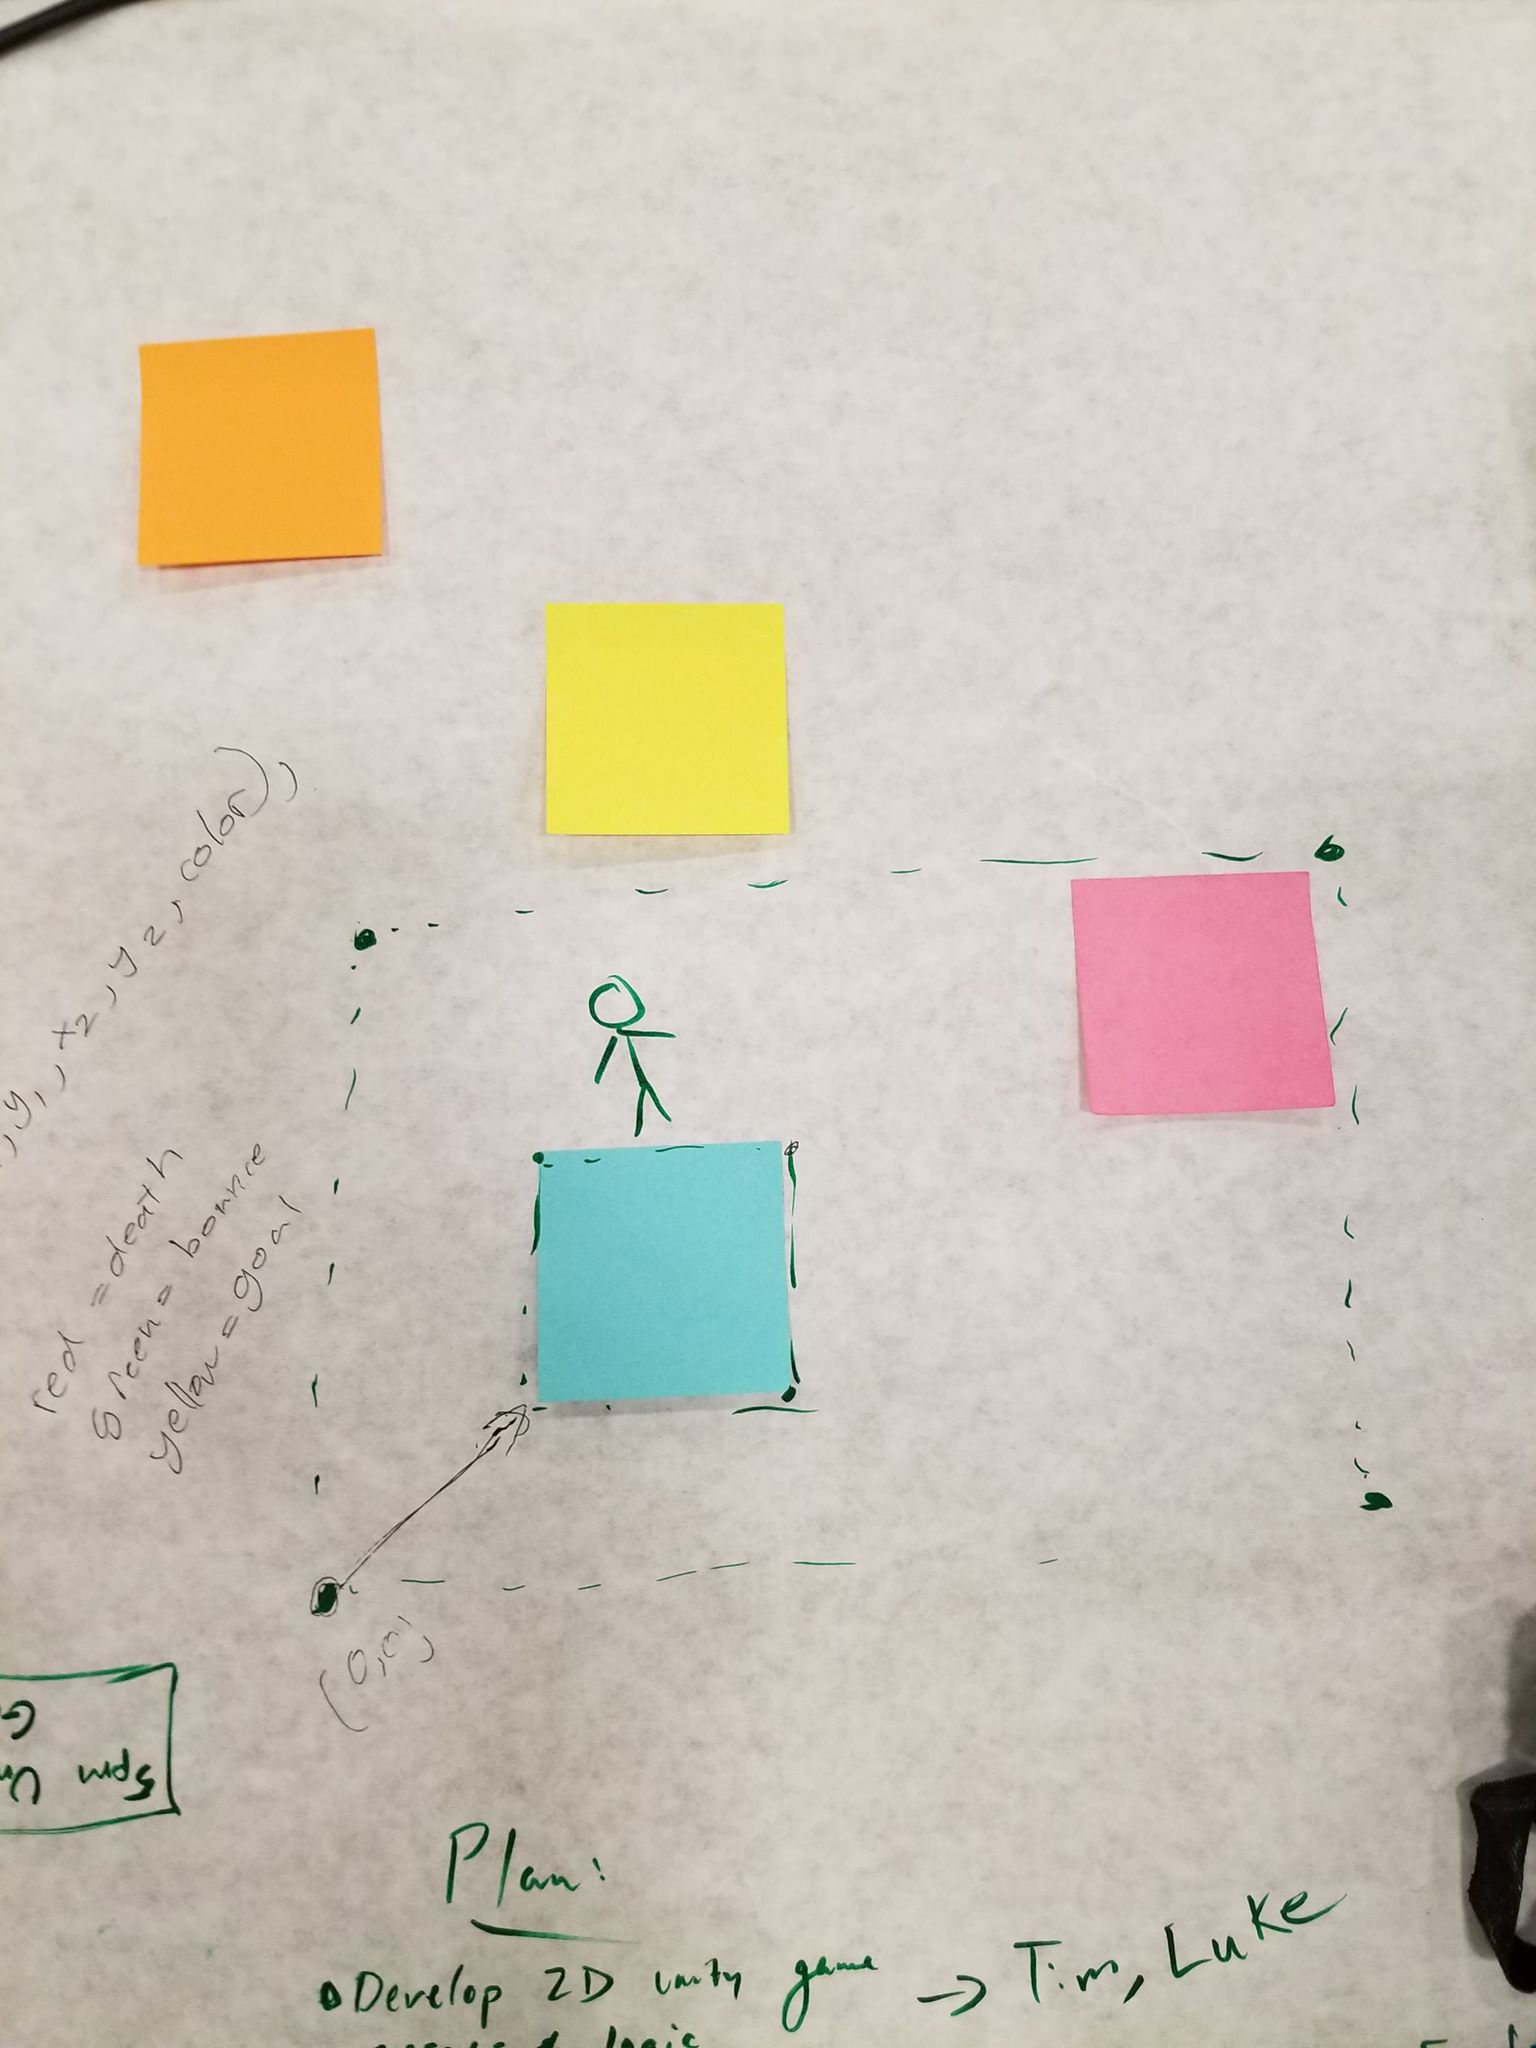 , y, , x2, y2, color),
red = death
green = bounce
yellow = goal
(0,0)
Spin
Plan:
Develop 2D unity game → Tim, Luke
logic